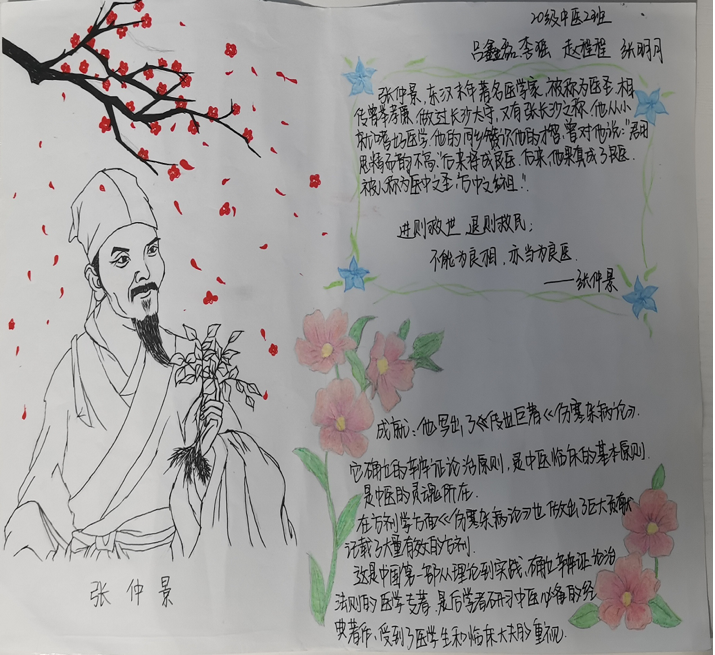 20级中医2班
吕鑫磊 李瑶 赵程程 张明月
张仲景,东汉末年著名医学家,被称为医圣.相
传曾举孝廉,做过长沙太守,又有张长沙之称.他从小
就嗜好医学.他的同乡赏识他的才智,曾对他说:"君用
思精而韵不高,后来将成良医.后来,他果真成了良医.
被人称为医中之圣,方中之祖."
进则救世,退则救民;
不能为良相,亦当为良医.
——张仲景
成就:他写出了《传世巨著《伤寒杂病论》.
它确立的辛件证论治原则,是中医临床的基本原则.
是中医的灵魂所在.
在方剂学方面《伤寒杂病论》也做出了巨大贡献
记载了大量有效的方剂.
这是中国第一部从理论到实践,确立辛件证论治
法则的医学专著.是后学者研习中医必备的经
典著作,受到了医学生和临床大夫的重视.
张仲景